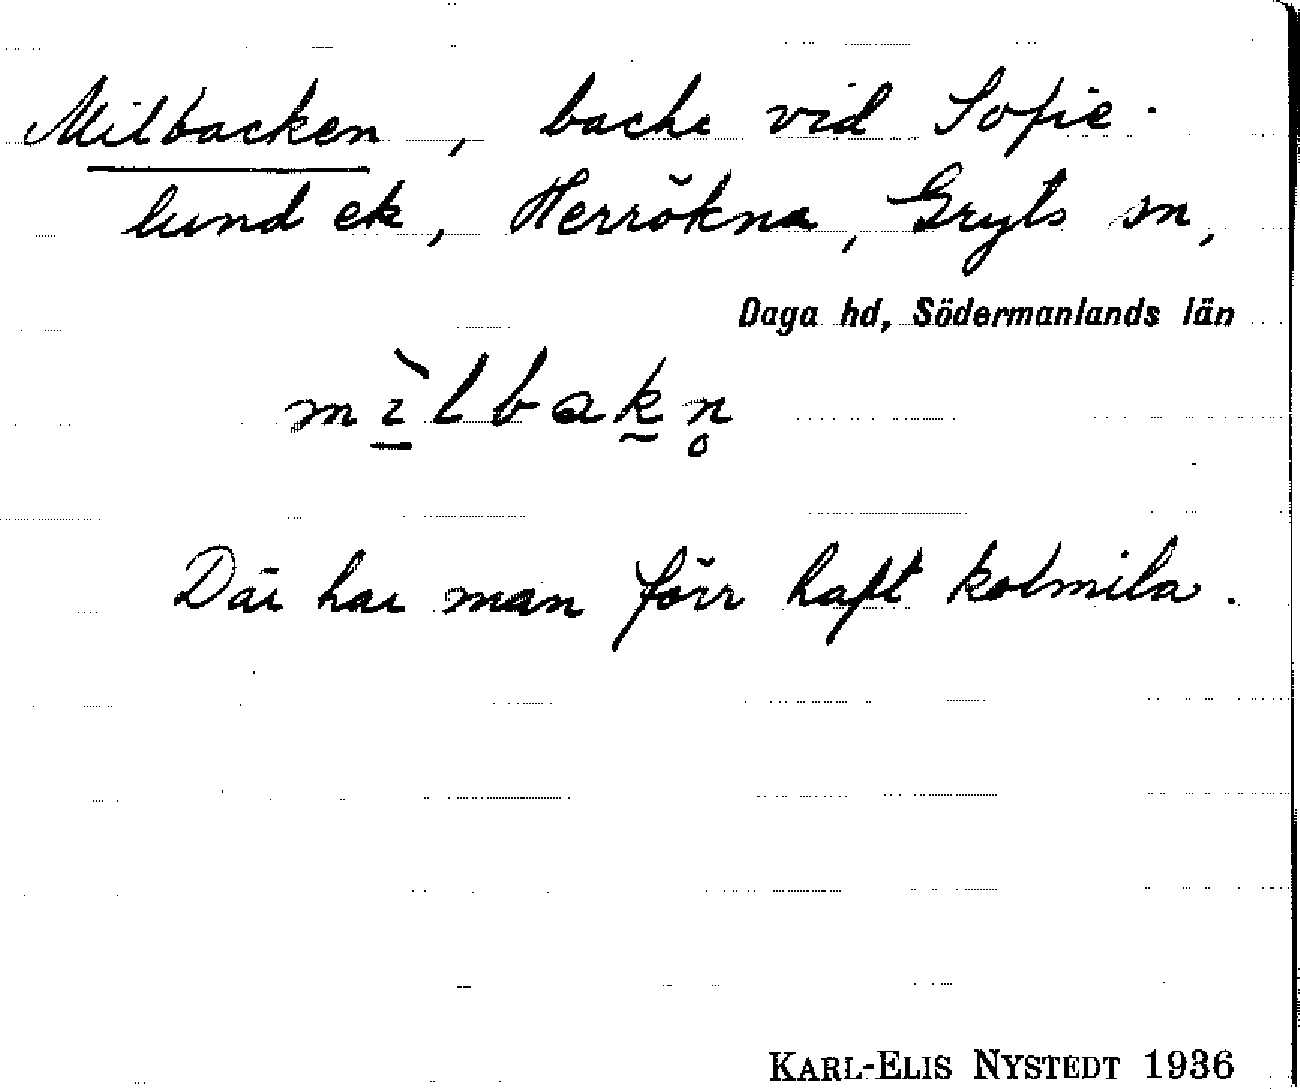 Milbacken, backe vid Sofie-
lund ek, Herrökna, Gryts sn,
Daga hd, Södermanlands län
mı̲̀lbak̰n̥
Där har man förr haft kolmila.
KARL-ELIS NYSTEDT 1936